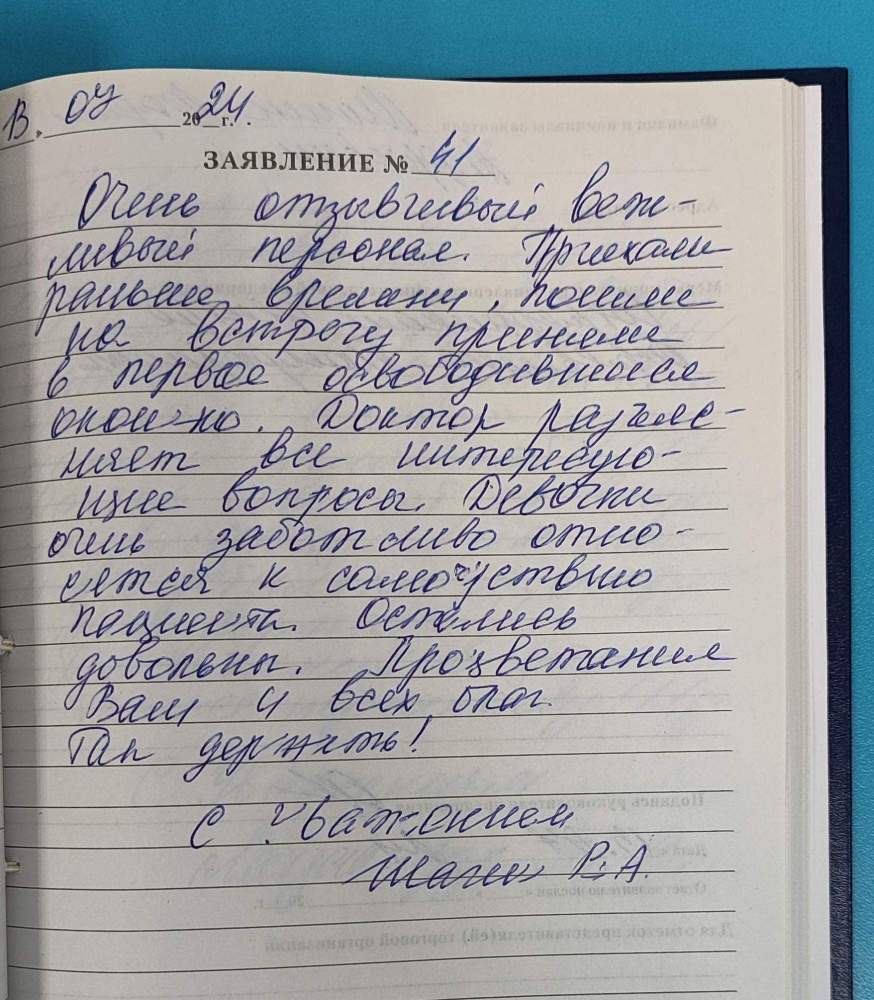 07 2024 г.
ЗАЯВЛЕНИЕ № 41
Очень отзывчивый веж-
ливый персонал. Приехали
раньше времени, пошли
на встречу приняли
в первое освободившееся
окошко. Доктор разъяс-
няет все интересую-
щие вопросы. Девочки
очень заботливо отно-
сятся к самочуствию
пациента. Остались
довольны. Процветания
Вам и всех благ.
Так держать!
С уважением
Р.А.